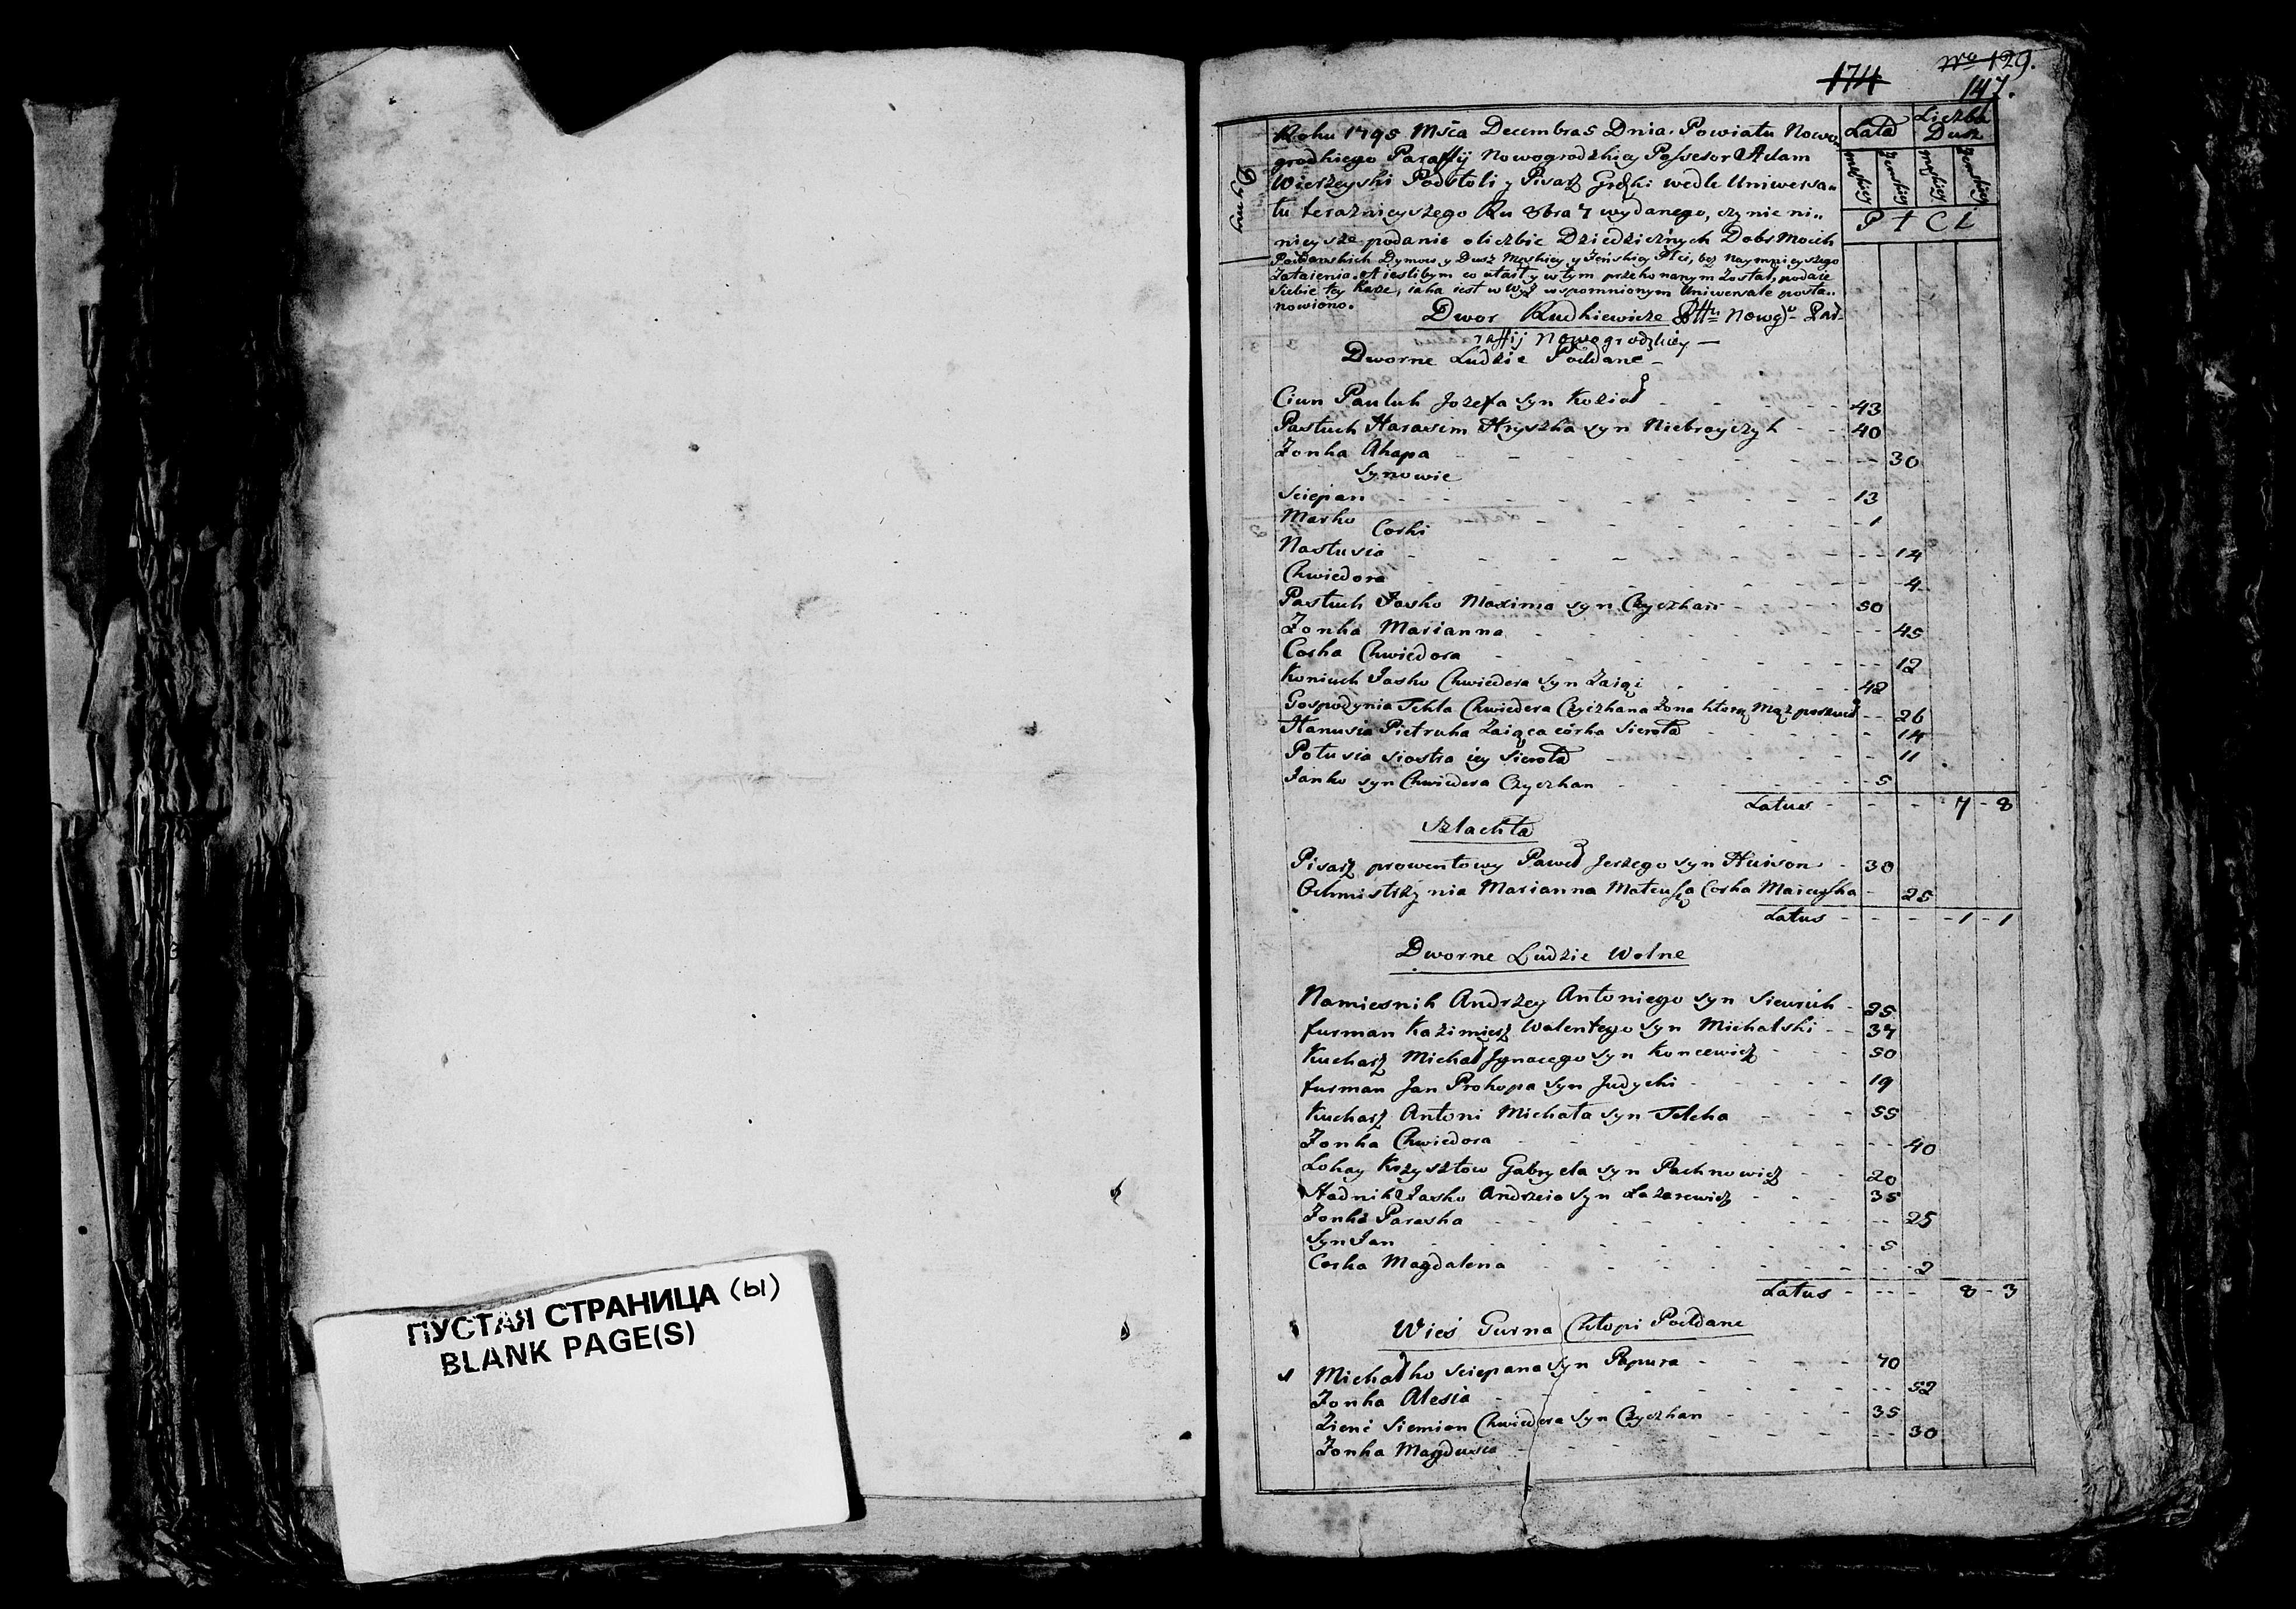 ПУСТАЯ СТРАНИЦА (ы)
BLANK PAGE(S)
174
No 129.
147.
Dymy
Lata
Liczba Dusz
męskiey
żenskiey
męskiey
żenskiey
P ł C i
Roku 1795 Mśca Decembra 5 Dnia. Powiatu Nowo„
grodkiego Paraffij Nowogrodzkiey Possesor Adam
Wierzeyski Podstoli y Pisarz Grdzki wedle Uniwersa„
łu teraznieyszego Ru 8bra 7 wydanego, czynie ni„
nieysze podanie o liczbie Dziedzicznych Dobr Moich
Dymow y Dusz Męskiey y Żeńskiey Płci, bez naymnieyszego
Zataienia. A ieslibym co utaił y w tym przekonanym został, podaie
siebie tey karze, iaka iest w wyż wspomnionym Uniwersale posta„
nowiono.
Dwor Rudkiewicze Pttu Nowgo Pa„
raffij Nowogrodzkiey —
Dworne Ludzie Poddane —
Ciun Pauluk Jozefa syn Kozioł 43
Pastuch Harasim Hryszka syn Niebrayczyk 40
Żonka Ahapa 30
Synowie
Sciepan 13
Marko 1
Corki
Nastusia 14
Chwiedora 4
Pastuch Jasko Maxima syn Czyczkan 50
Żonka Marianna 45
Corka Chwiedora 12
Koniuch Jasko Chwiedera syn Zaiąc 42
Gospodynia Tekla Chwiedera Czyczkana Żona ktorą Mąż porzucił 26
Hanusia Pietruka Zaiąca córka Sierota 14
Połusia siostra iey Sierota 11
Janko syn Chwiedera Czyczkan 5
Latus 7 - 8
Szlachta
Pisarz prowentowy Paweł Jerzego syn 30
Ochmistrzynia Marianna Mateusza Corka 25
Latus 1 - 1
Dworne Ludzie Wolne
Namiesnik Andrzey Antoniego syn 25
furman Kazimierz Walentego syn Michalski 37
Kucharz Michał Jgnacego syn Koncewicz 50
furman Jan Prokopa syn Judycki 19
Kucharz Antoni Michała syn Telcha 55
Żonka Chwiedora 40
Lokay Krzysztow Gabryela syn Pachnowicz 20
Stadnik Jasko Andrzeia syn Łazarewicz 35
Żonka Paraska 25
Syn Jan 5
Corka Magdalena 2
Latus 8 - 3
Wieś Gurna Chłopi Poddane
1 Michałko Sciepana syn Papura 70
Żonka Alesia 52
Zienć Siemion Chwiedera syn Czyczkan 35
Żonka Magdusia 30